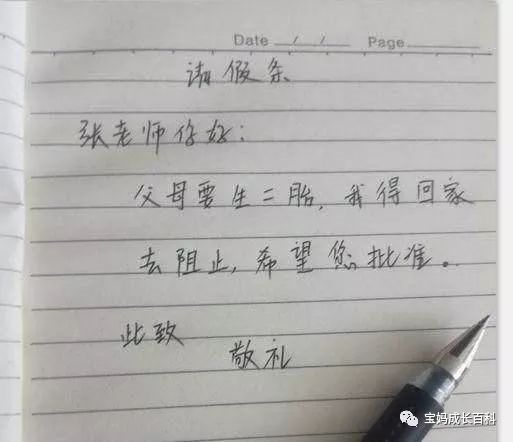 Date / / Page
请假条
张老师你好：
父母要生二胎，我得回家
去阻止，希望您批准。
此致
敬礼
宝妈成长百科